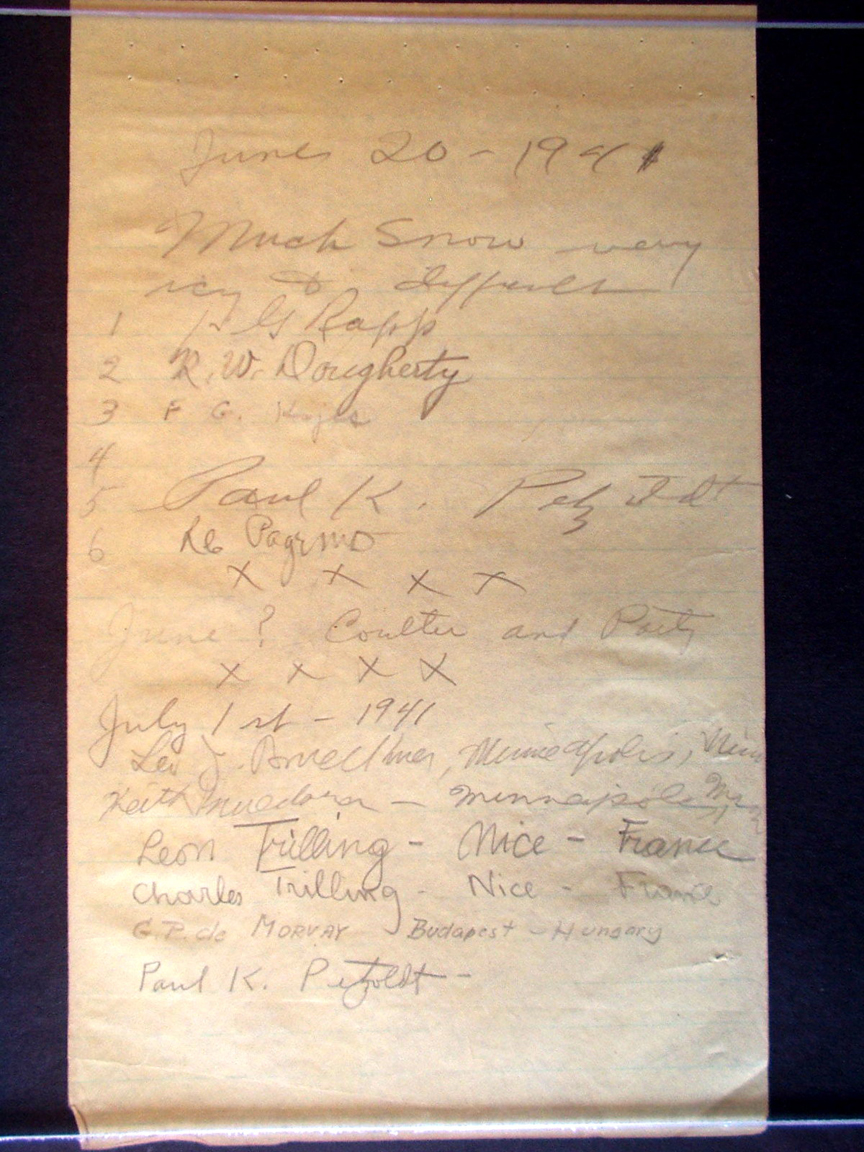 June 20 - 1941
Much Snow very
icy & difficult
1 P G Rapp
2 R. W. Dougherty
3 F G.
4
5 Paul K. Petzoldt
6
x x x x
June ? Coulter and Party
x x x x
July 1 st - 1941
Leo J. Minneapolis, Minn
Keith - Minneapolis, Minn
Leon Trilling - Nice - France
Charles Trilling - Nice - France
G.P. de MORVAY Budapest - Hungary
Paul K. Petzoldt -